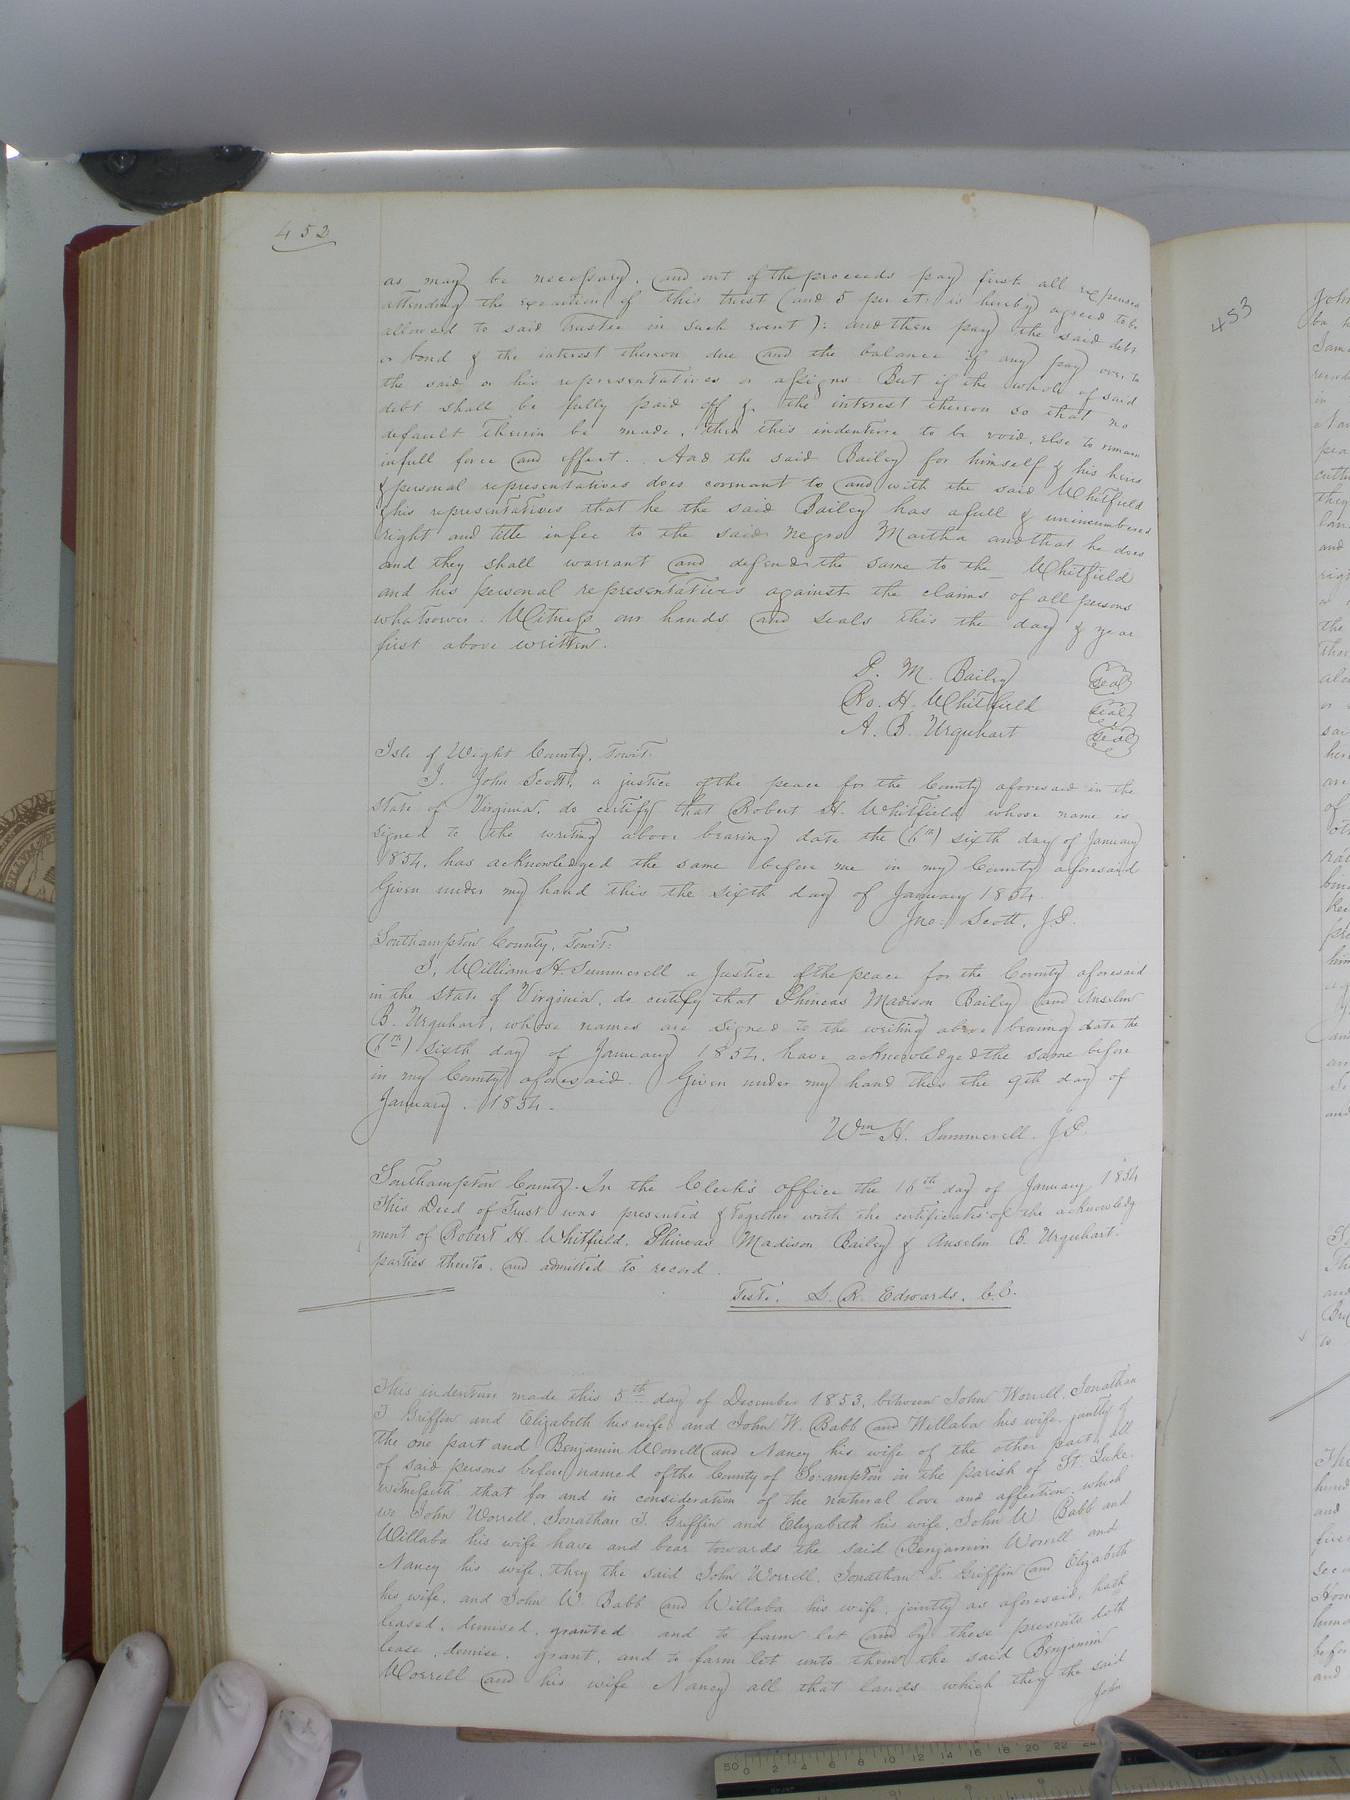 452
as may be necessary, and out of the proceeds pay first all expenses
attending the execution of this trust (and 5 per ct. is hereby agreed to be
allowed to said Trustee in such event): and then pay the said debt
or bond & the interest thereon due and the balance if any pay over to
the said or his representatives or assigns. But if the whole of said
debt shall be fully paid off & the interest thereon so that no
default therein be made, then this indenture to be void, else to remain
in full force and effect. And the said Bailey for himself & his heirs
& personal representatives does covenant to and with the said Whitfield
& his representatives that he the said Bailey has a full & unincumbered
right and title in fee to the said negro Martha and that he does
and they shall warrant and defend the same to the Whitfield
and his personal representatives against the claims of all persons
whatsoever. Witness our hands and seals this the day & year
first above written.
P. M. Bailey seal
Ro. H. Whitfield seal
A. B. Urquhart seal
Isle of Wight County, Towit:
I, John Scott, a justice of the peace for the County aforesaid in the
State of Virginia, do certify that Robert H. Whitfield, whose name is
signed to the writing above bearing date the (6th) sixth day of January
1854, has acknowledged the same before me in my County aforesaid
Given under my hand this the sixth day of January 1854.
Jno: Scott, J.P.
Southampton County, Towit:
I, William H. Summerell a Justice of the peace for the County aforesaid
in the State of Virginia, do certify that Phineas Madison Bailey and Anselm
B. Urquhart, whose names are signed to the writing above bearing date the
(6th) sixth day of January 1854, have acknowledged the same before
in my County aforesaid. Given under my hand this the 9th day of
January, 1854.
Wm H. Summerell. J.P.
Southampton County. In the Clerk's office the 16th day of January 1854
This Deed of Trust was presented & together with the certificates of the acknowledg
ment of Robert H. Whitfield, Phineas Madison Bailey & Anselm B. Urquhart.
parties thereto, and admitted to record.
Teste. L. R. Edwards, C.C.
This indenture made this 5th day of December 1853, between John Worrell, Jonathan
T Griffin and Elizabeth his wife and John W. Babb and Willaba his wife, jointly of
the one part and Benjamin Worrell and Nancy his wife of the other part, all
of said persons before named of the County of So:ampton in the parish of St Luke.
Witnesseth that for and in consideration of the natural love and affection, which
we John Worrell, Jonathan T. Griffin and Elizabeth his wife, John W Babb and
Willaba his wife have and bear towards the said Benjamin Worrell and
Nancy his wife, they the said John Worrell, Jonathan T. Griffin and Elizabeth
his wife, and John W. Babb and Willaba his wife, jointly as aforesaid, hath
leased, demised, granted and to farm let and by these presents doth
lease, demise, grant, and to farm let unto them the said Benjamin
Worrell and his wife Nancy all that lands which they the said
John
453